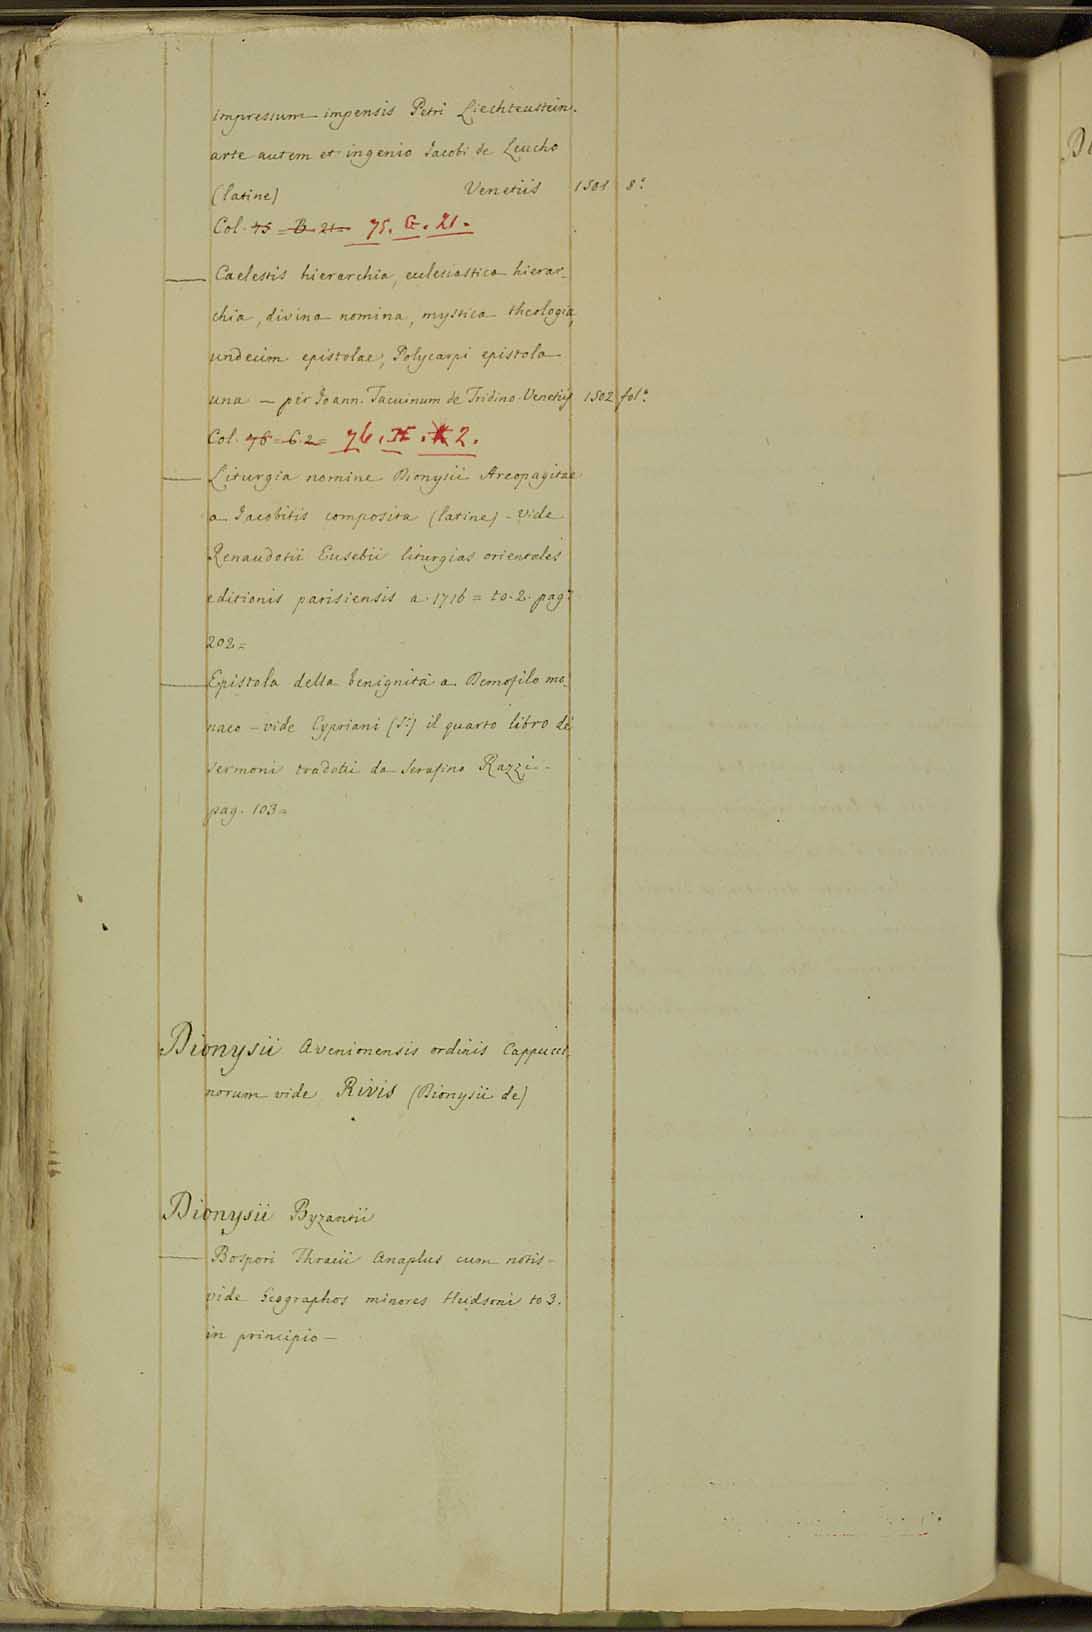 impressum impensis Petri Liechteustein.
arte autem et ingenio Jacobi de Leucho
(latine) Venetiis 1501 8.º
Col. 75 = B. 21 = 75. G. 21.
— Caelestis hierarchia, ecclesiastica hierar-
chia, divina nomina, mystica theologia,
undecim epistolae, Polycarpi epistola
una — per Joann. Tacuinum de Tridino Venetiis 1502 fol.º
Col. 76 = 6. 2 = 76. H. 2.
— Liturgia nomine Dionysii Areopagitae
a Jacobitis composita (latine) - vide
Renaudotii Eusebii liturgias orientales
editionis parisiensis a. 1716 = to. 2. pag.
202 =
— Epistola della benignità a Demofilo mo-
naco - vide Cypriani (S.) il quarto libro de
sermoni tradotti da Serafino Razzi -
pag. 103 =
Dionysii Avenionensis ordinis Cappucci-
norum vide Rivis (Dionysii de)
Dionysii Byzantii
— Bospori Thracii Anaplus cum notis -
vide Geographos minores Hudsoni to 3.
in principio —